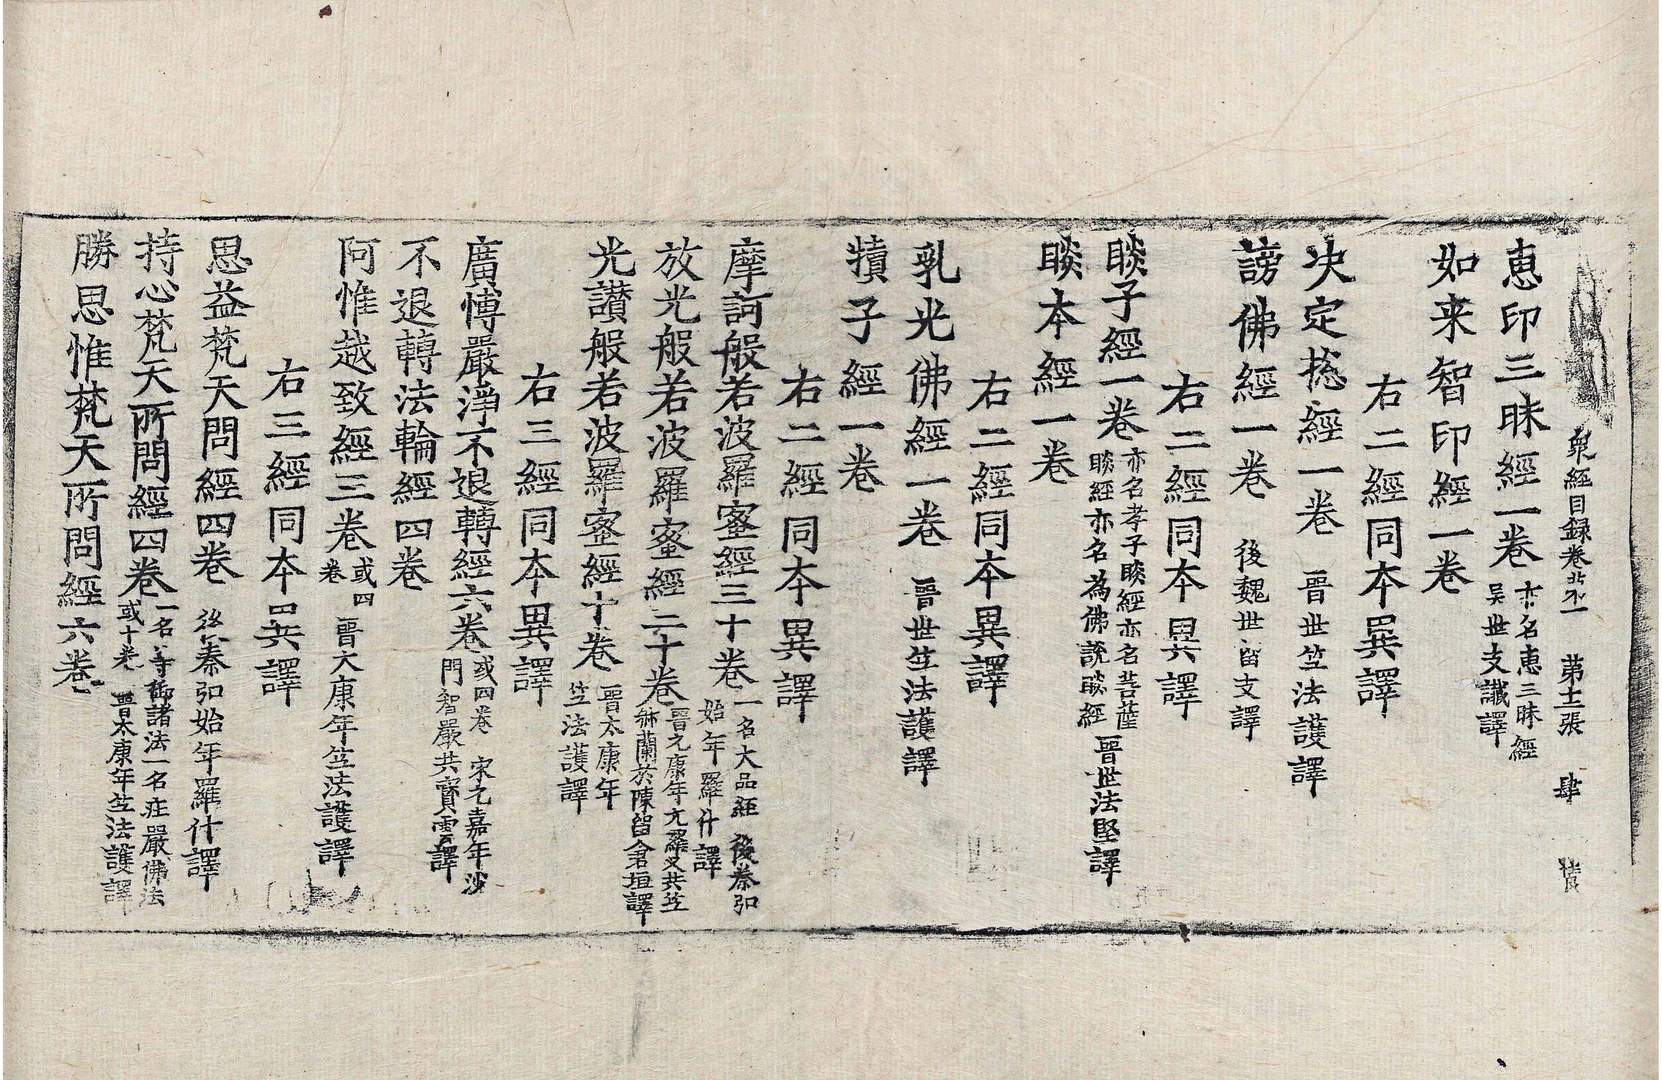 衆經目録卷苐二 苐十一張 肆
恵印三昧經一卷 亦名恵三昧經 吴世支讖譯
如来智印經一卷
右二經同本異譯
决定捴經一卷 晉世竺法護譯
謗佛經一卷 後魏世留支譯
右二經同本異譯
睒子經一卷 亦名孝子睒經亦名菩薩睒經亦名為佛說睒經 晉世法堅譯
睒本經一卷
右二經同本異譯
乳光佛經一卷 晉世竺法護譯
犢子經一卷
右二經同本異譯
摩訶般若波羅蜜經三十卷 一名大品經 後秦弘始年羅什譯
放光般若波羅蜜經二十卷 晉元康年無羅叉共竺䑓蘭於陳留倉垣譯
光讃般若波羅蜜經十卷 晉太康年竺法護譯
右三經同本異譯
廣愽嚴淨不退轉經六卷 或四卷 宋元嘉年沙門智嚴共寳雲譯
不退轉法輪經四卷
阿惟越致經三卷 或四卷 晉太康年竺法護譯
右三經同本異譯
思益梵天問經四卷 後秦弘始年羅什譯
持心梵天所問經四卷 一名等御諸法一名庄嚴佛法或十卷 晉太康年竺法護譯
勝思惟梵天所問經六卷